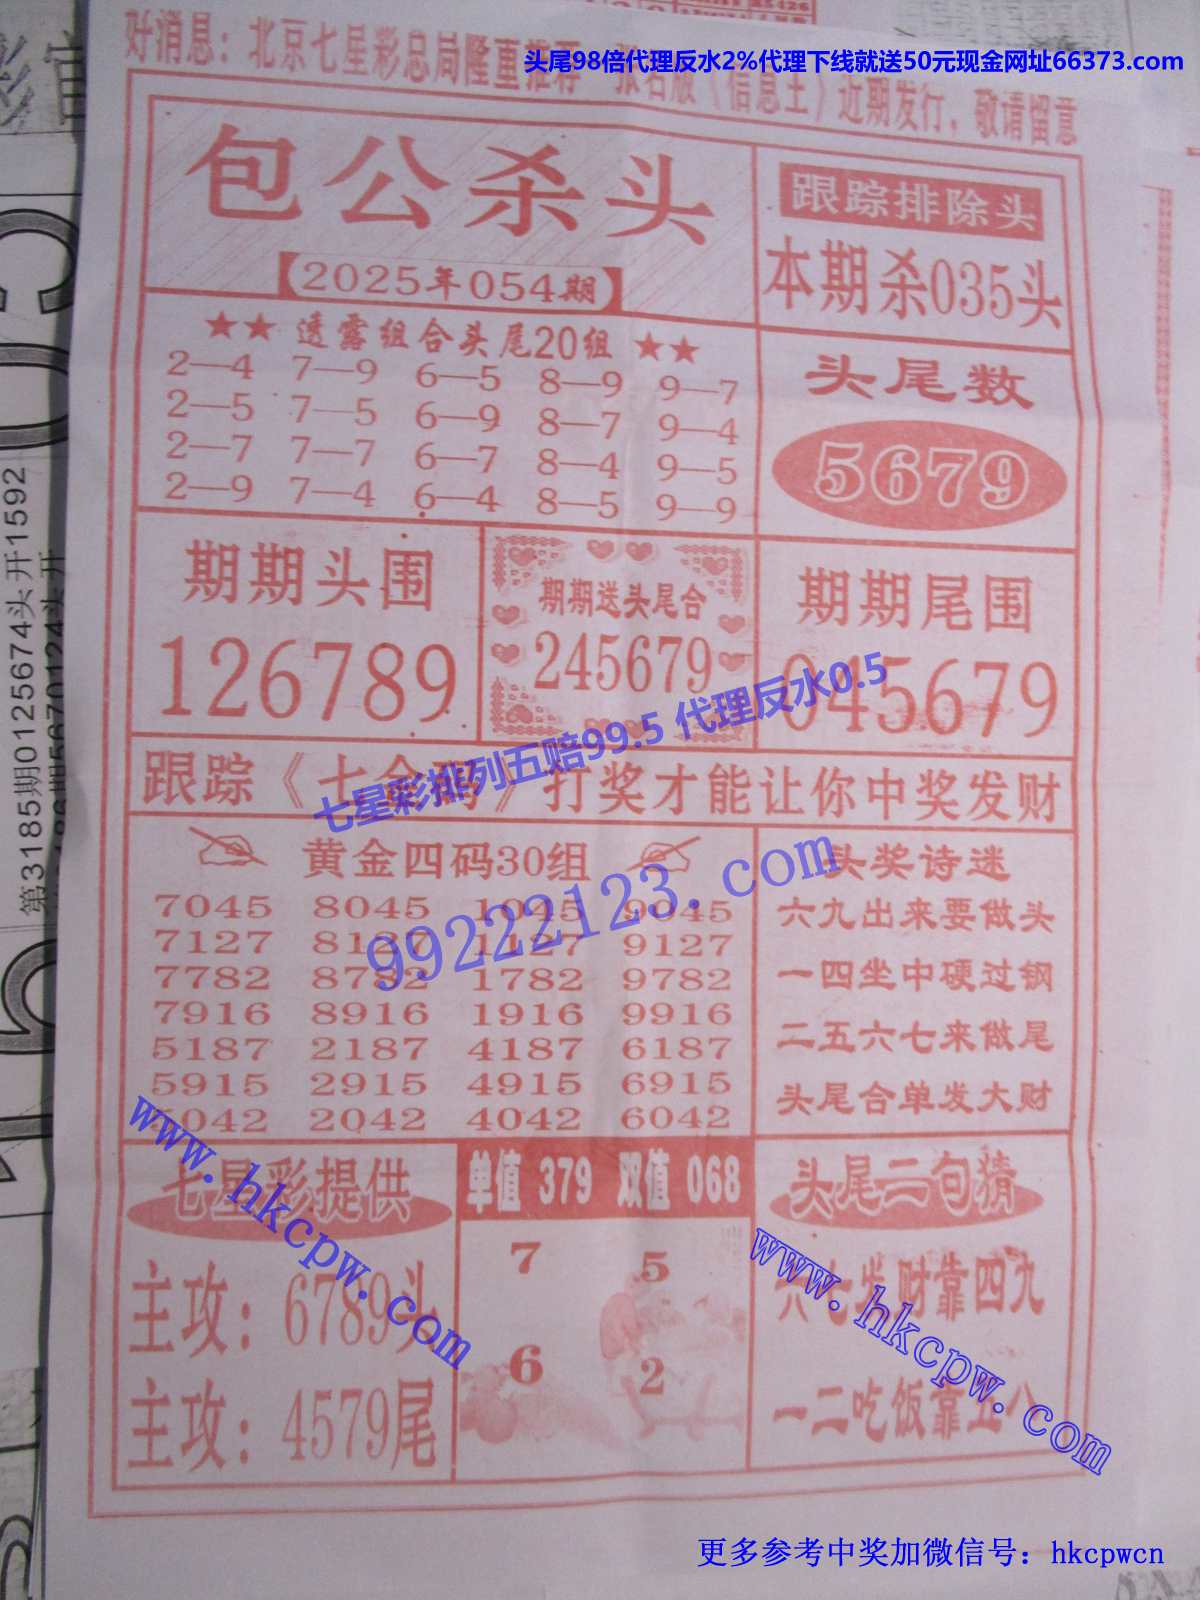 头尾98倍代理反水2%代理下线就送50元现金网址66373.com
好消息：北京七星彩总局隆重推荐 张石版《信息王》近期发行，敬请留意
包公杀头
【2025年054期】
跟踪排除头
本期杀035头
★★ 透露组合头尾20组 ★★
2—4 7—9 6—5 8—9 9—7
2—5 7—5 6—9 8—7 9—4
2—7 7—7 6—7 8—4 9—5
2—9 7—4 6—4 8—5 9—9
头尾数
5679
期期头围
126789
期期送头尾合
245679
期期尾围
045679
七星彩排列五赔99.5 代理反水0.5
跟踪《七合码》打奖才能让你中奖发财
黄金四码30组
7045 8045 1045 9045
7127 8127 1127 9127
7782 8782 1782 9782
7916 8916 1916 9916
5187 2187 4187 6187
5915 2915 4915 6915
5042 2042 4042 6042
99222123.com
头奖诗迷
六九出来要做头
一四坐中硬过钢
二五六七来做尾
头尾合单发大财
七星彩提供
主攻：6789头
主攻：4579尾
www.hkcpw.com
单值 379 双值 068
7 5
6 2
头尾二句猜
六七发财靠四九
一二吃饭靠五八
www.hkcpw.com
更多参考中奖加微信号：hkcpwcn
第3185期0125674头开1592